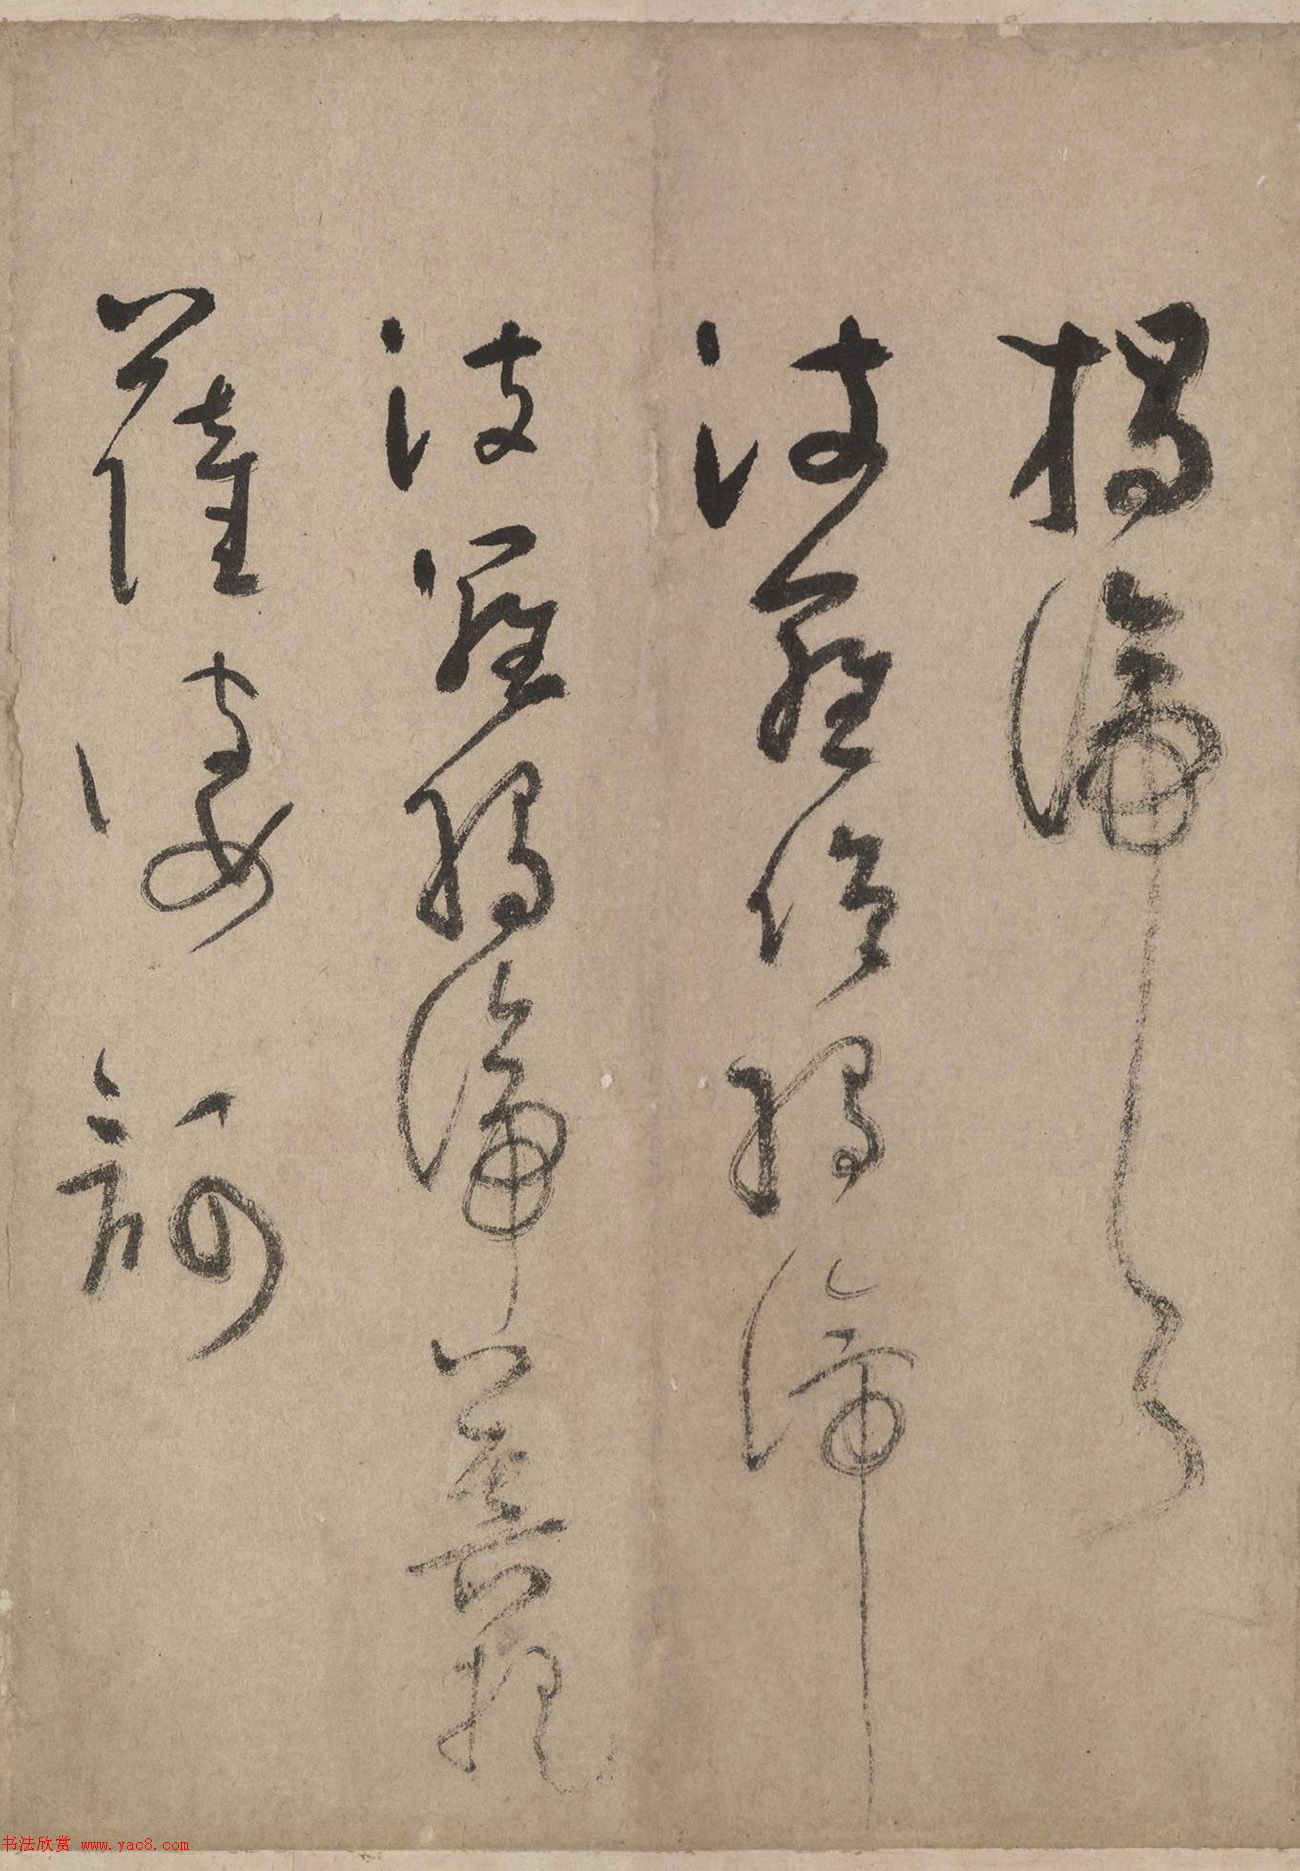 揭諦〻〻
波羅僧揭諦
波羅揭諦菩提
薩婆訶
书法欣赏 www.yac8.com